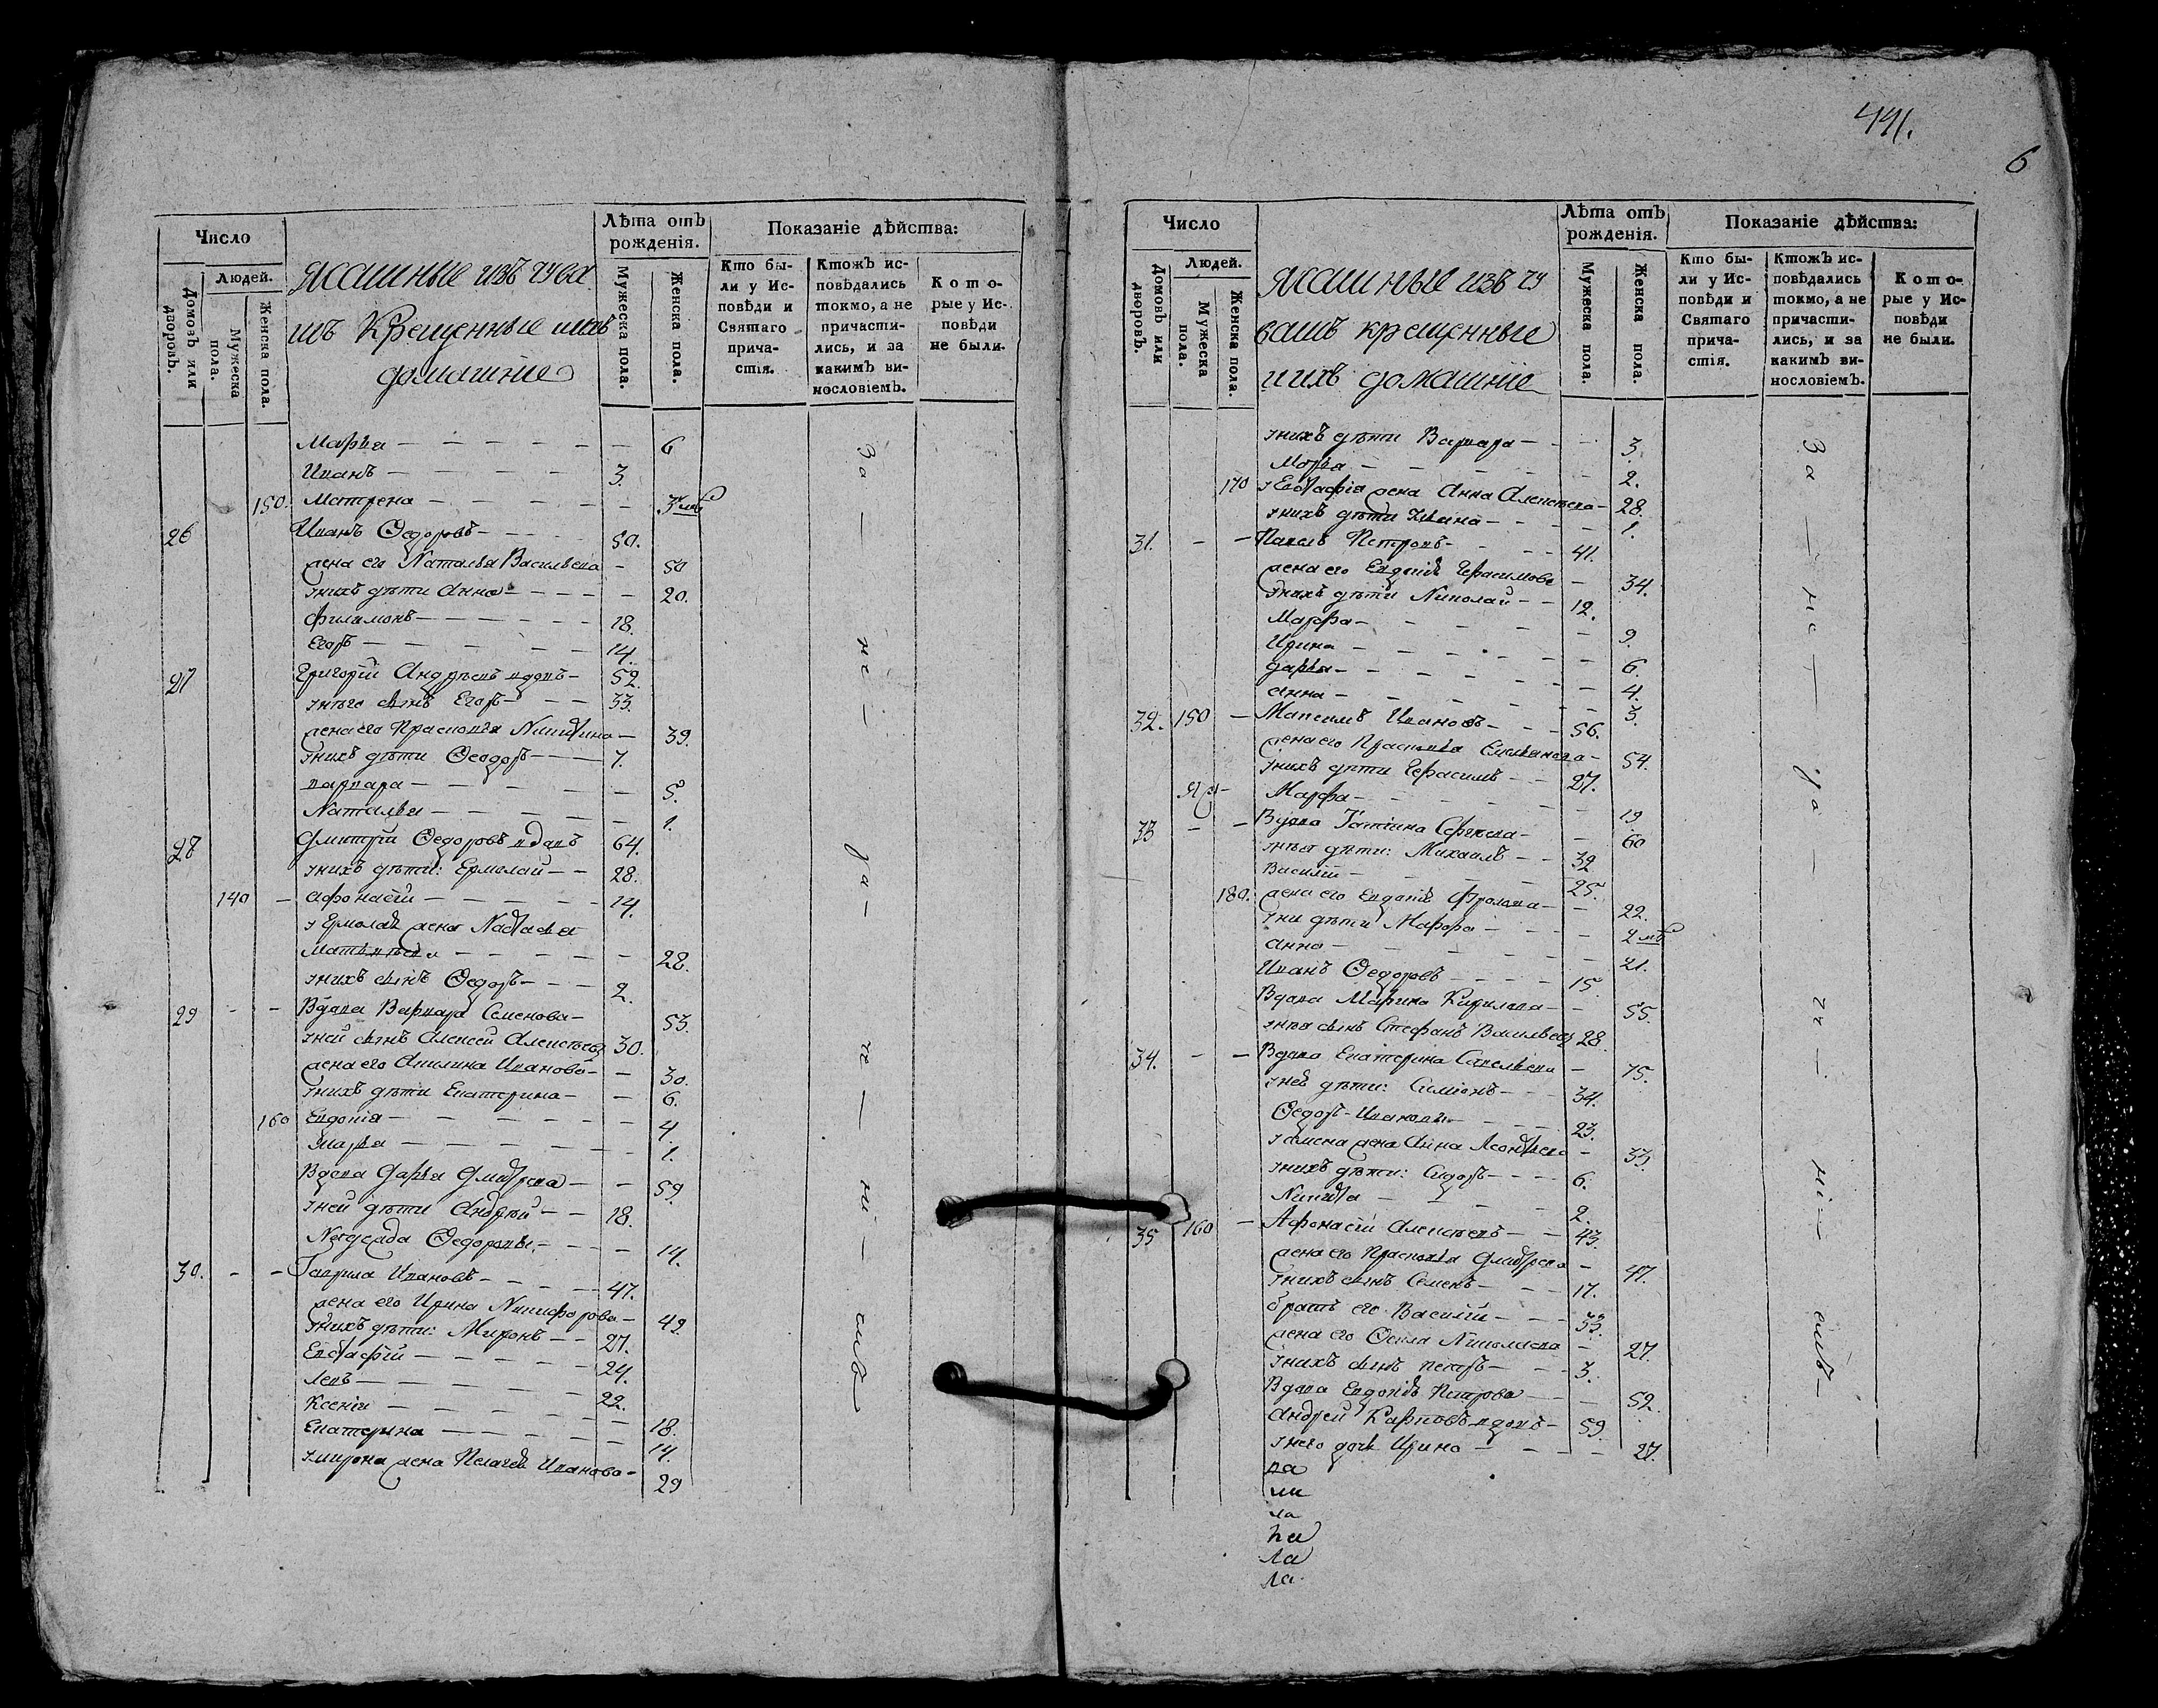 441.
6
Число
Людей.
Домовъ или дворовъ.
Мужеска пола.
Женска пола.
Ясашные изъ чува
шъ Крещенные ихъ
домашнiе
Лѣта отъ рожденія.
Мужеска пола.
Женска пола.
Показаніе дѣйства:
Кто были у Исповѣди и Святаго причастія.
Ктожъ исповѣдались токмо, а не причастились, и за какимъ винословіемъ.
Которые у Исповѣди не были.
Марья — 6
Иванъ — 3.
150. Матрена —
26 Иванъ Ѳедоровъ — 50.
жена его Наталья Васильева — 50
у нихъ дѣти Анна — 20.
Филимонъ — 18.
Егоръ — 14.
27 Григорій Андрѣевъ вдовъ — 52.
у него сынъ Егоръ — 33.
жена его Прасковья Никитина — 39.
у нихъ дѣти Ѳеодоръ — 7.
варвара — 5.
Наталья — 1.
28 Дмитрій Ѳедоровъ вдовъ 64.
у нихъ дѣти: Ермолай — 28.
140 — Афонасій — 14.
у Ермолая жена Настасья
Матвѣева — 28.
у нихъ сынъ Ѳедоръ — 2.
29 — — Вдова Варвара Семенова — 53.
у ней сынъ Алексей Алексѣевъ 30.
жена его Акилина Иванова — 30.
у нихъ дѣти Екатерина — 6.
160 Евдокія — 4
Марья — 1.
Вдова Дарья Дмитрева — 59.
у ней дѣти Андрей — 18.
Ѳедоровы — 14.
30. — — Гаврила Ивановъ — 47.
жена его Ирина Никифорова — 49.
у нихъ дѣти: Миронъ — 27.
Евстафій — 24.
Левъ — 22.
Ксенія — 18.
Екатерина — 14.
у Мирона жена Пелагея Иванова — 29
За — не — да — че — ні — емъ
Число
Людей.
Домовъ или дворовъ.
Мужеска пола.
Женска пола.
Ясашные изъ чу
вашъ крещенные
и ихъ домашніе
Лѣта отъ рожденія.
Мужеска пола.
Женска пола.
Показаніе дѣйства:
Кто были у Исповѣди и Святаго причастія.
Ктожъ исповѣдались токмо, а не причастились, и за какимъ винословіемъ.
Которые у Исповѣди не были.
у нихъ дѣти Варвара — 3.
Марья — 2.
170 у Евстафія жена Анна Алексѣева — 28.
у нихъ дѣти — 1.
31. — — Павелъ Петровъ — 41.
жена его Евдокія Герасимова — 34.
у нихъ дѣти Николай — 12.
Марфа — 9.
Ирина — 6.
дарья — 4.
анна — 3.
32. 150 — Максимъ Ивановъ — 56.
жена его Прасковья Емельянова — 54.
у нихъ дѣти Герасимъ — 27.
Марфа — 19
33 — — Вдова Татiана — 60
у нея дѣти: Михаилъ — 32
Василій — 25.
180. жена его Евдокія Фролова — 22.
у ни дѣти Марфа — 2 мѣ
анна — 21.
Иванъ Ѳедоровъ — 15.
Вдова Марина Кирилова — 55.
у нея сынъ Стефанъ Васильевъ 28.
34. — — Вдова Екатерина Савельева — 75.
у ней дѣти: Симіонъ — 34.
Ѳедоръ Ивановы — 23.
у семена жена Анна Леонтьева — 33.
у нихъ дѣти: Сидоръ — 6.
Никита — 2.
35 160 — Афонасій Алексѣевъ — 43.
жена его Прасковья Дмитрева — 47.
у нихъ сынъ Семенъ — 17.
братъ его Василій — 33.
жена его Ѳекла Николаева — 27.
у нихъ сынъ петръ — 3.
Вдова Евдокія Петрова — 52.
андрей Карповъ вдовъ — 59.
у него дочь Ирина — 27.
ва
ми
ла
на
ла
ла
За — не — да — че — ні — емъ —